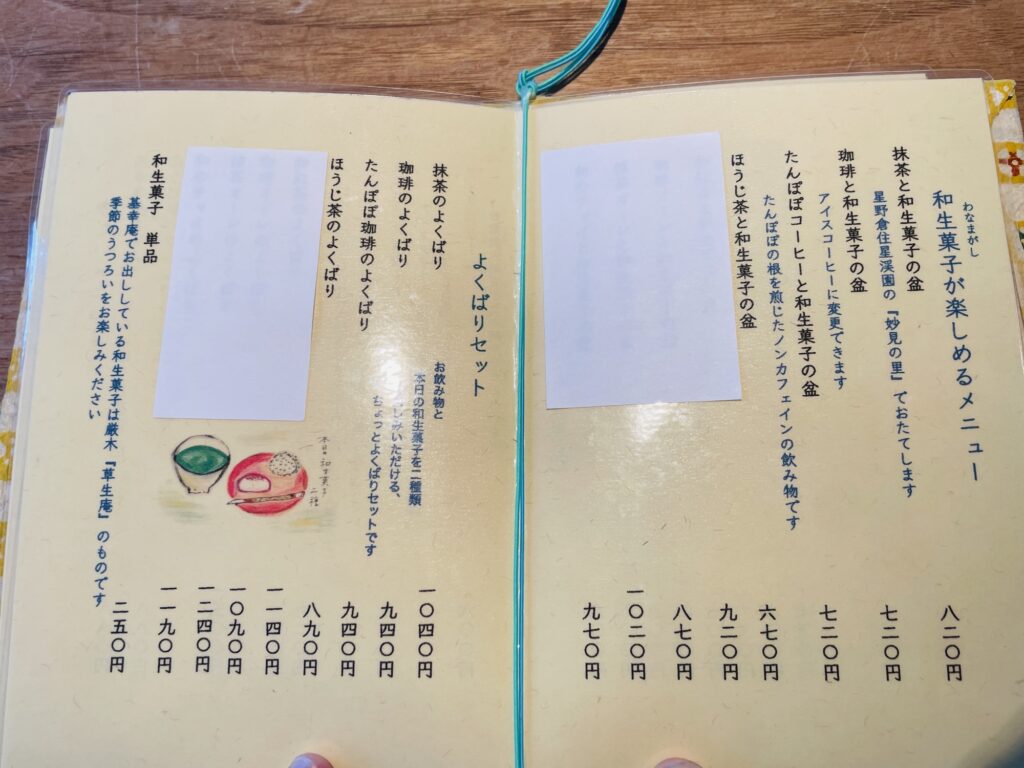 わなまがし
和生菓子が楽しめるメニュー
抹茶と和生菓子の盆
八二〇円
星野倉住星渓園の『妙見の里』ておたてします
珈琲と和生菓子の盆
七二〇円
アイスコーヒーに変更できます
たんぽぽコーヒーと和生菓子の盆
七二〇円
たんぽぽの根を煎じたノンカフェインの飲み物です
ほうじ茶と和生菓子の盆
六七〇円
九二〇円
八七〇円
一〇二〇円
九七〇円
よくばりセット
お飲み物と
本日の和生菓子を二種類
しみいただける、
ちょっとよくばりセットです
抹茶のよくばり
一〇四〇円
珈琲のよくばり
九四〇円
たんぽぽ珈琲のよくばり
九四〇円
ほうじ茶のよくばり
八九〇円
一一四〇円
一〇九〇円
一二四〇円
一一九〇円
本日の和生菓子
二種
和生菓子 単品
二五〇円
基幸庵でお出ししている和生菓子は厳木『草生庵』のものです
季節のうつろいをお楽しみください